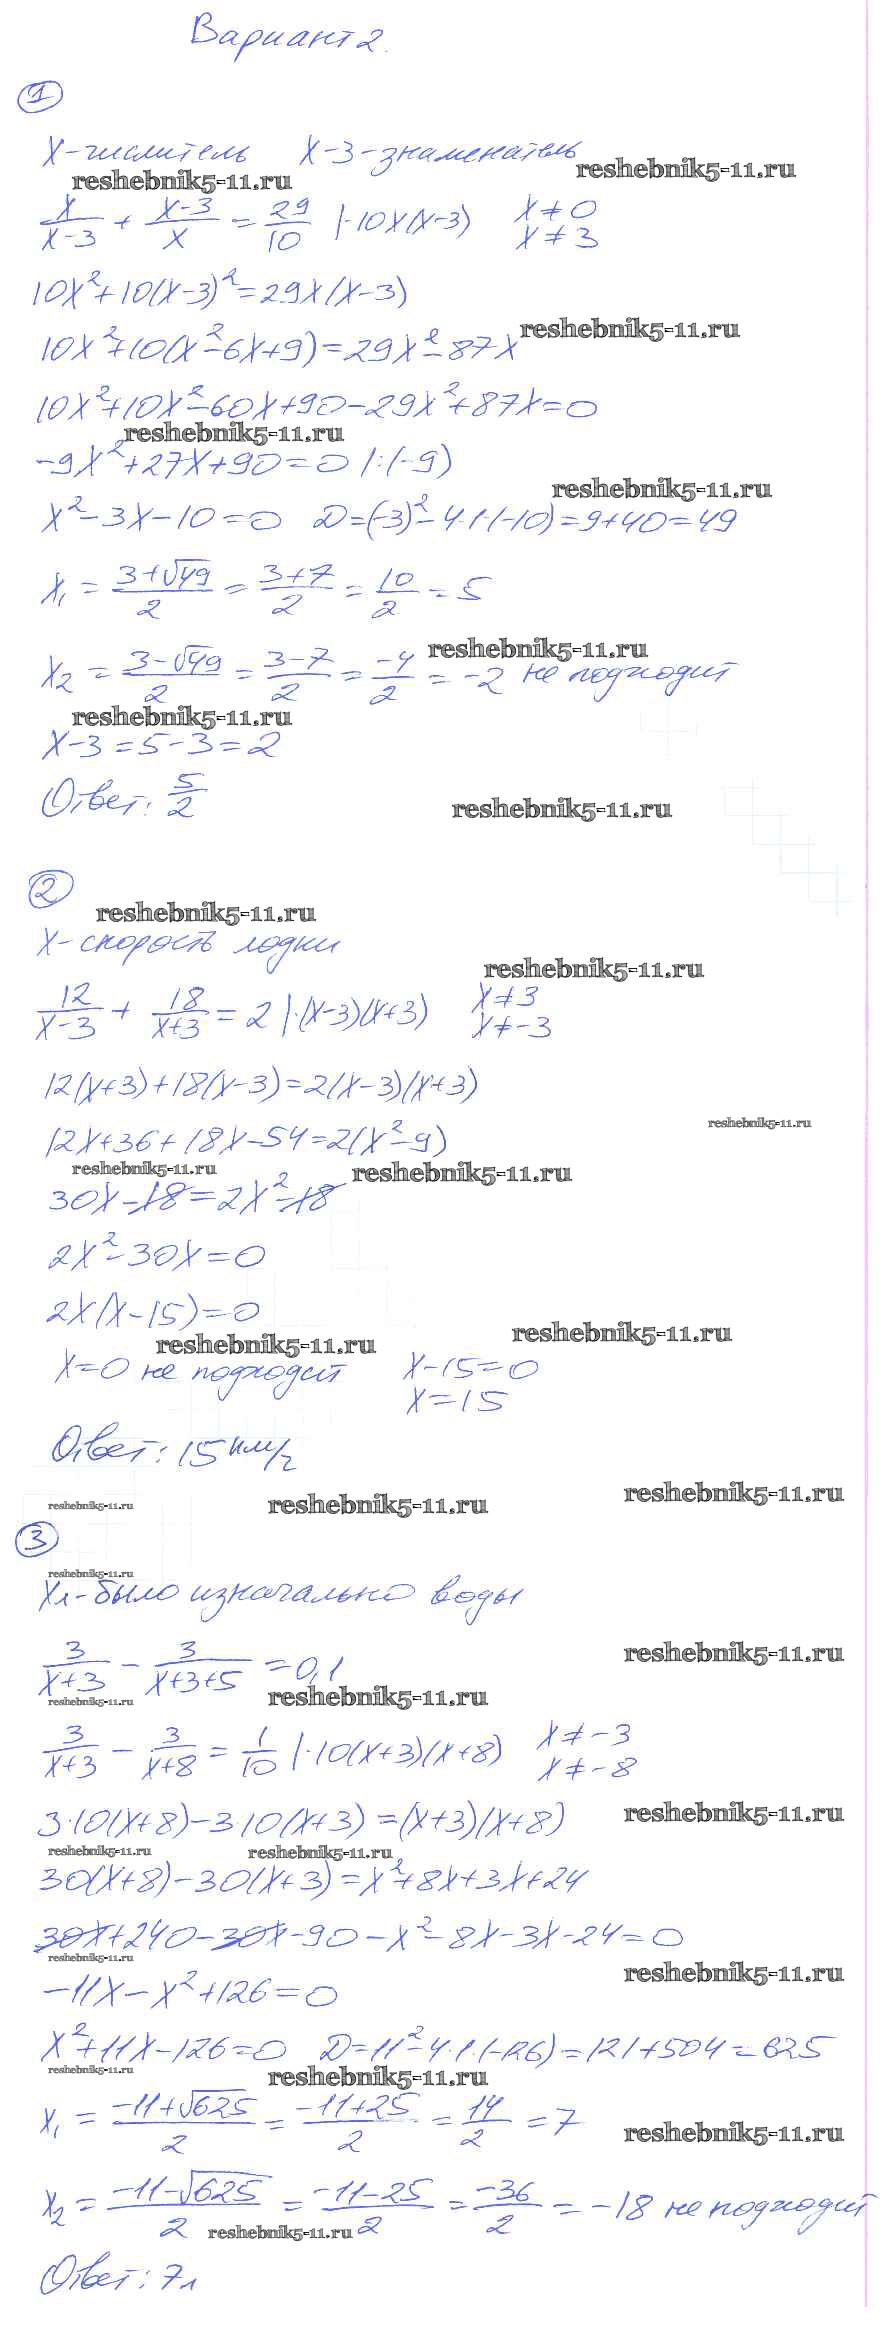 Вариант 2.
1
X-числитель X-3-знаменатель
reshebnik5-11.ru reshebnik5-11.ru
x/(x-3) + (x-3)/x = 29/10 |·10x(x-3) x≠0
x≠3
10x²+10(x-3)²=29x(x-3)
10x²+10(x²-6x+9)=29x²-87x
reshebnik5-11.ru
10x²+10x²-60x+90-29x²+87x=0
reshebnik5-11.ru
-9x²+27x+90=0 |:(-9)
reshebnik5-11.ru
x²-3x-10=0 D=(-3)²-4·1·(-10)=9+40=49
x₁ = (3+√49)/2 = (3+7)/2 = 10/2 = 5
reshebnik5-11.ru
x₂ = (3-√49)/2 = (3-7)/2 = -4/2 = -2 не подходит
reshebnik5-11.ru
x-3=5-3=2
Ответ: 5/2
reshebnik5-11.ru
2
reshebnik5-11.ru
X-скорость лодки
reshebnik5-11.ru
12/(x-3) + 18/(x+3) = 2 |·(x-3)(x+3) x≠3
x≠-3
12(x+3)+18(x-3)=2(x-3)(x+3)
reshebnik5-11.ru
12x+36+18x-54=2(x²-9)
reshebnik5-11.ru reshebnik5-11.ru
30x-18=2x²-18
2x²-30x=0
2x(x-15)=0
reshebnik5-11.ru reshebnik5-11.ru
x=0 не подходит x-15=0
x=15
Ответ: 15 км/ч
reshebnik5-11.ru reshebnik5-11.ru reshebnik5-11.ru
3
reshebnik5-11.ru
Xл-было изначально воды
3/(x+3) - 3/(x+3+5) = 0,1
reshebnik5-11.ru
reshebnik5-11.ru reshebnik5-11.ru
3/(x+3) - 3/(x+8) = 1/10 |·10(x+3)(x+8) x≠-3
x≠-8
3·10(x+8)-3·10(x+3)=(x+3)(x+8)
reshebnik5-11.ru
reshebnik5-11.ru reshebnik5-11.ru
30(x+8)-30(x+3)=x²+8x+3x+24
30x+240-30x-90-x²-8x-3x-24=0
reshebnik5-11.ru
reshebnik5-11.ru
-11x-x²+126=0
x²+11x-126=0 D=11²-4·1·(-126)=121+504=625
reshebnik5-11.ru reshebnik5-11.ru
x₁ = (-11+√625)/2 = (-11+25)/2 = 14/2 = 7
reshebnik5-11.ru
x₂ = (-11-√625)/2 = (-11-25)/2 = -36/2 = -18 не подходит
reshebnik5-11.ru
Ответ: 7л